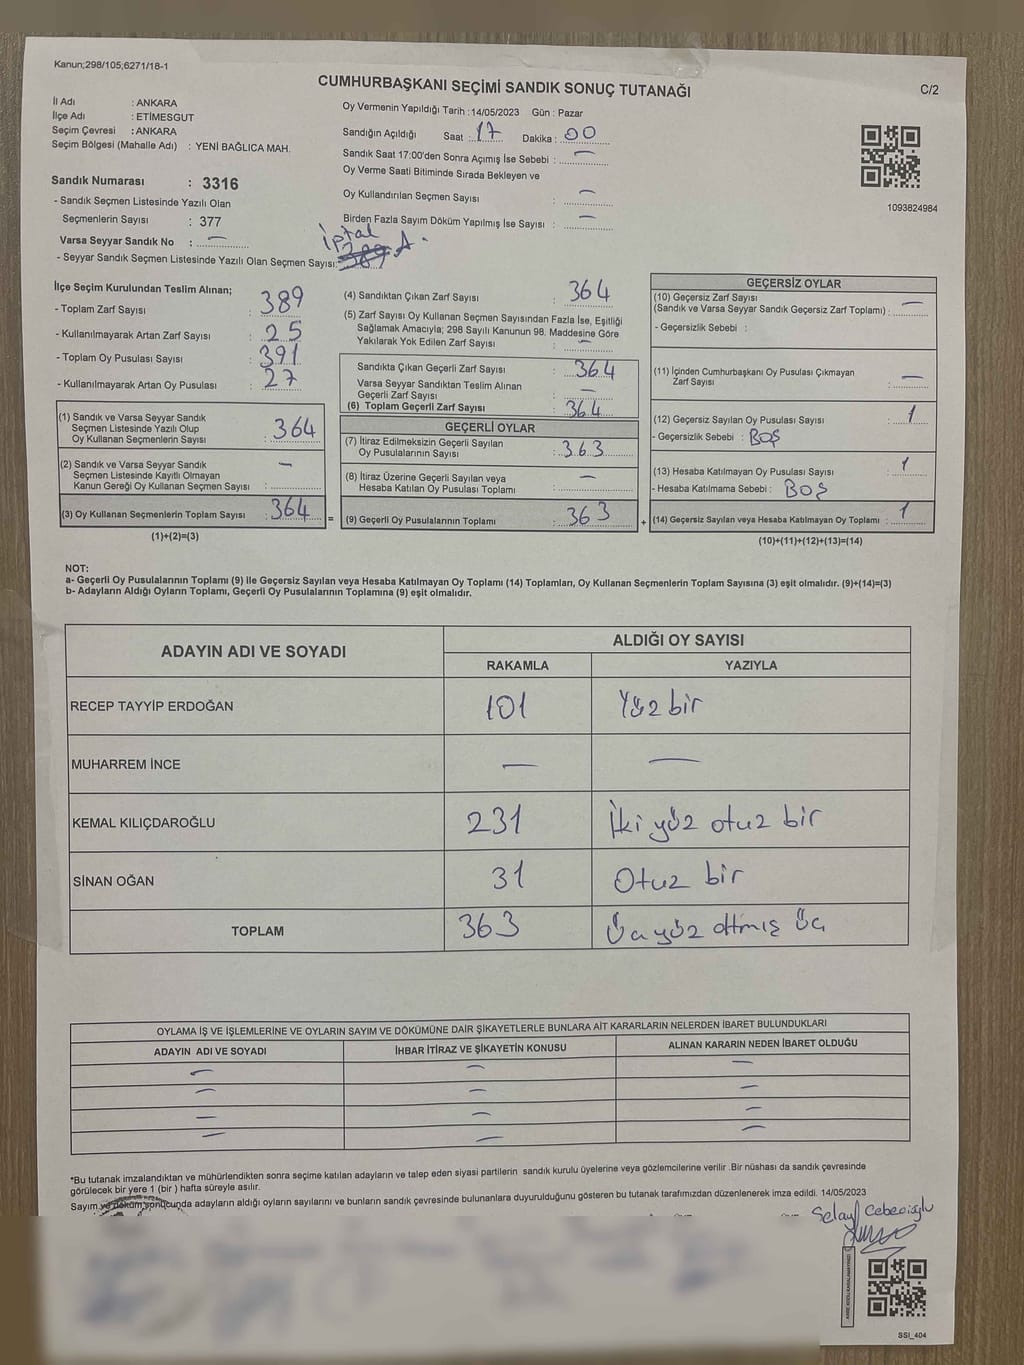 Kanun;298/105;6271/18-1
CUMHURBAŞKANI SEÇİMİ SANDIK SONUÇ TUTANAĞI
C/2
İl Adı : ANKARA
İlçe Adı : ETİMESGUT
Seçim Çevresi : ANKARA
Seçim Bölgesi (Mahalle Adı) : YENİ BAĞLICA MAH.
Sandık Numarası : 3316
- Sandık Seçmen Listesinde Yazılı Olan
Seçmenlerin Sayısı : 377
Varsa Seyyar Sandık No : —
- Seyyar Sandık Seçmen Listesinde Yazılı Olan Seçmen Sayısı: 389
İptal
A.
Oy Vermenin Yapıldığı Tarih :14/05/2023 Gün : Pazar
Sandığın Açıldığı Saat : 17 Dakika : 00
Sandık Saat 17:00'den Sonra Açımış İse Sebebi : —
Oy Verme Saati Bitiminde Sırada Bekleyen ve
Oy Kullandırılan Seçmen Sayısı : —
Birden Fazla Sayım Döküm Yapılmış İse Sayısı : —
1093824984
İlçe Seçim Kurulundan Teslim Alınan;
- Toplam Zarf Sayısı : 389
- Kullanılmayarak Artan Zarf Sayısı : 25
- Toplam Oy Pusulası Sayısı : 391
- Kullanılmayarak Artan Oy Pusulası : 27
(1) Sandık ve Varsa Seyyar Sandık
Seçmen Listesinde Yazılı Olup
Oy Kullanan Seçmenlerin Sayısı : 364
(2) Sandık ve Varsa Seyyar Sandık
Seçmen Listesinde Kayıtlı Olmayan
Kanun Gereği Oy Kullanan Seçmen Sayısı : —
(3) Oy Kullanan Seçmenlerin Toplam Sayısı : 364
(1)+(2)=(3)
(4) Sandıktan Çıkan Zarf Sayısı : 364
(5) Zarf Sayısı Oy Kullanan Seçmen Sayısından Fazla İse, Eşitliği
Sağlamak Amacıyla; 298 Sayılı Kanunun 98. Maddesine Göre
Yakılarak Yok Edilen Zarf Sayısı : —
Sandıkta Çıkan Geçerli Zarf Sayısı : 364
Varsa Seyyar Sandıktan Teslim Alınan
Geçerli Zarf Sayısı : —
(6) Toplam Geçerli Zarf Sayısı : 364
GEÇERLİ OYLAR
(7) İtiraz Edilmeksizin Geçerli Sayılan
Oy Pusulalarının Sayısı : 363
(8) İtiraz Üzerine Geçerli Sayılan veya
Hesaba Katılan Oy Pusulası Toplamı : —
= (9) Geçerli Oy Pusulalarının Toplamı : 363
GEÇERSİZ OYLAR
(10) Geçersiz Zarf Sayısı
(Sandık ve Varsa Seyyar Sandık Geçersiz Zarf Toplamı) : —
- Geçersizlik Sebebi :
(11) İçinden Cumhurbaşkanı Oy Pusulası Çıkmayan
Zarf Sayısı : —
(12) Geçersiz Sayılan Oy Pusulası Sayısı : 1
- Geçersizlik Sebebi : BOŞ
(13) Hesaba Katılmayan Oy Pusulası Sayısı : 1
- Hesaba Katılmama Sebebi : BOŞ
+ (14) Geçersiz Sayılan veya Hesaba Katılmayan Oy Toplamı : 1
(10)+(11)+(12)+(13)=(14)
NOT:
a- Geçerli Oy Pusulalarının Toplamı (9) ile Geçersiz Sayılan veya Hesaba Katılmayan Oy Toplamı (14) Toplamları, Oy Kullanan Seçmenlerin Toplam Sayısına (3) eşit olmalıdır. (9)+(14)=(3)
b- Adayların Aldığı Oyların Toplamı, Geçerli Oy Pusulalarının Toplamına (9) eşit olmalıdır.
ADAYIN ADI VE SOYADI
ALDIĞI OY SAYISI
RAKAMLA YAZIYLA
RECEP TAYYİP ERDOĞAN 101 Yüz bir
MUHARREM İNCE — —
KEMAL KILIÇDAROĞLU 231 İki yüz otuz bir
SİNAN OĞAN 31 Otuz bir
TOPLAM 363 Üç yüz altmış üç
OYLAMA İŞ VE İŞLEMLERİNE VE OYLARIN SAYIM VE DÖKÜMÜNE DAİR ŞİKAYETLERLE BUNLARA AİT KARARLARIN NELERDEN İBARET BULUNDUKLARI
ADAYIN ADI VE SOYADI İHBAR İTİRAZ VE ŞİKAYETİN KONUSU ALINAN KARARIN NEDEN İBARET OLDUĞU
— — —
— — —
— — —
— — —
*Bu tutanak imzalandıktan ve mühürlendikten sonra seçime katılan adayların ve talep eden siyasi partilerin sandık kurulu üyelerine veya gözlemcilerine verilir .Bir nüshası da sandık çevresinde
görülecek bir yere 1 (bir ) hafta süreyle asılır.
Sayım ve döküm sonucunda adayların aldığı oyların sayılarını ve bunların sandık çevresinde bulunanlara duyurulduğunu gösteren bu tutanak tarafımızdan düzenlenerek imza edildi. 14/05/2023
Cebecioğlu
SSI_404